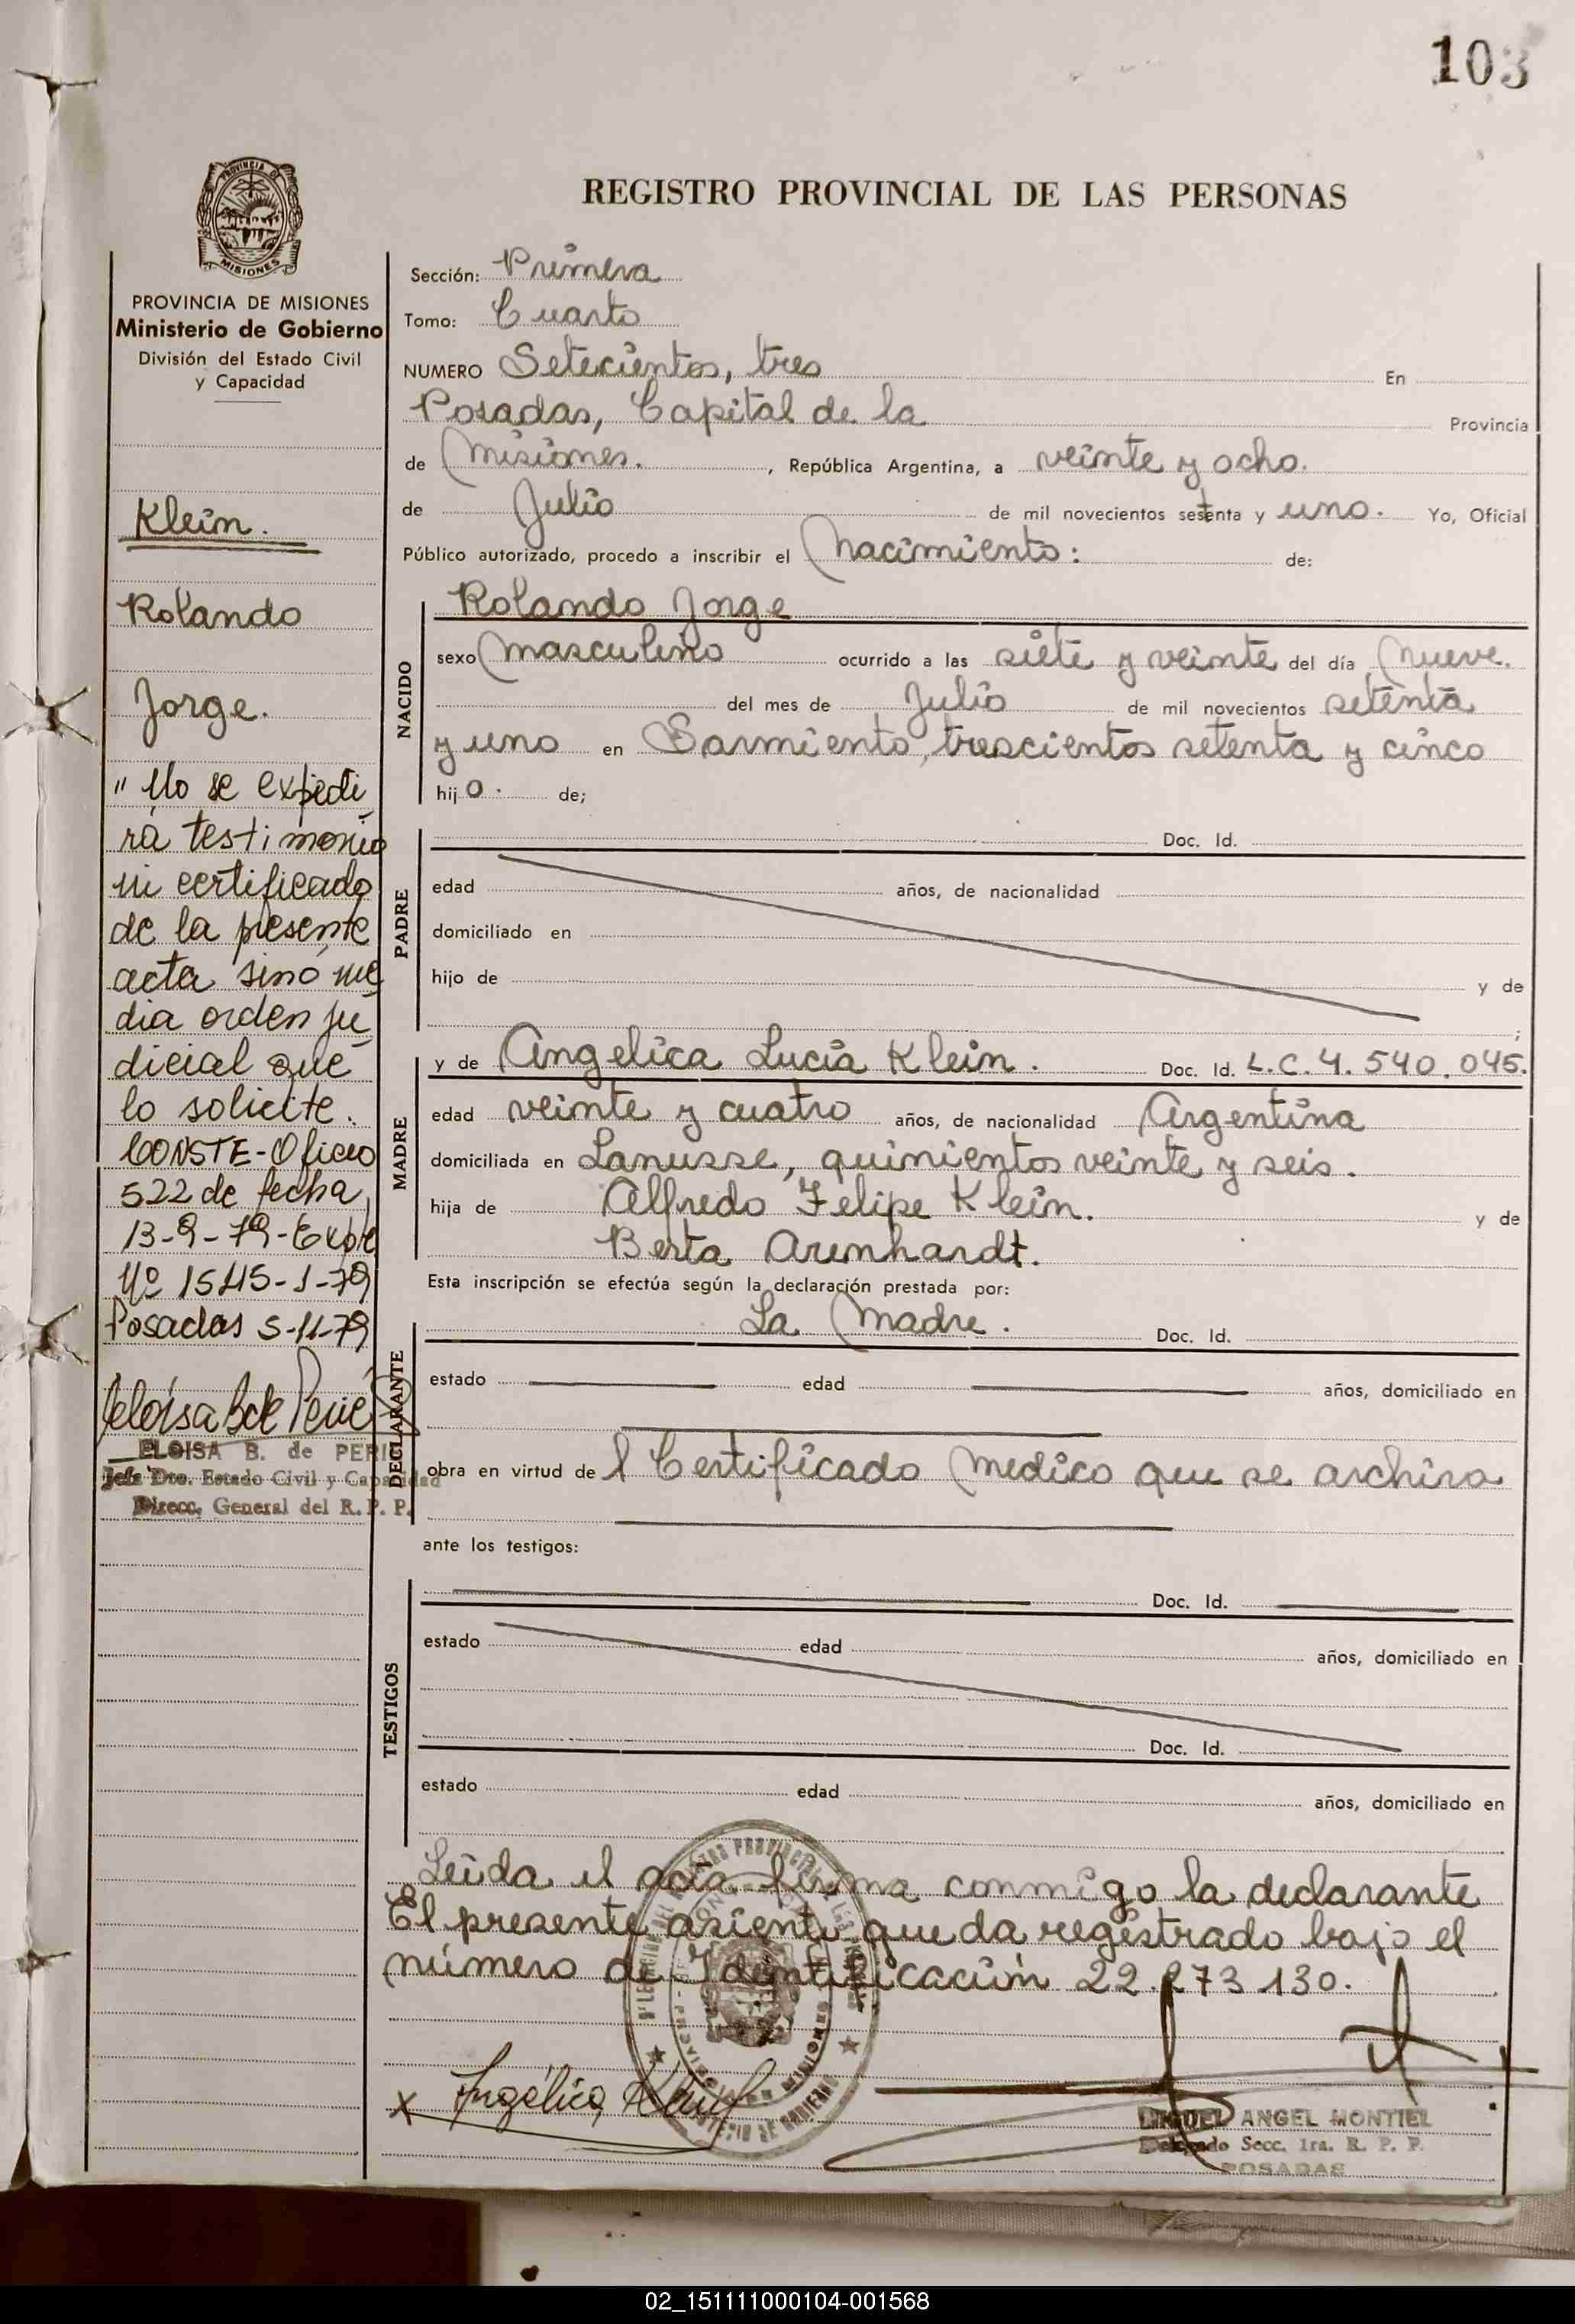 103
REGISTRO PROVINCIAL DE LAS PERSONAS
PROVINCIA DE
MISIONES
PROVINCIA DE MISIONES
Ministerio de Gobierno
División del Estado Civil
y Capacidad
Klein.
Rolando
Jorge.
"No se expedi
rá testimonio
ni certificado
de la presente
acta sinó me
dia orden ju
dicial que
lo solicite.
CONSTE-Oficio
522 de fecha
13-9-79-Expte
Nº 1545-J-79
Posadas 5-11-79
Eloisa B de Perié
ELOISA B. de PERI
Jefe Dto. Estado Civil y Capacidad
Direcc. General del R. P. P.
Sección: Primera
Tomo: Cuarto
NUMERO Setecientos, tres En
Posadas, Capital de la Provincia
de Misiones. , República Argentina, a veinte y ocho.
de Julio de mil novecientos setenta y uno. Yo, Oficial
Público autorizado, procedo a inscribir el Nacimiento: de:
NACIDO
Rolando Jorge
sexo masculino ocurrido a las siete y veinte del día Nueve.
del mes de Julio de mil novecientos setenta
y uno en Sarmiento, trescientos setenta y cinco
hijo. de;
PADRE
Doc. Id.
edad años, de nacionalidad
domiciliado en
hijo de y de
;
MADRE
y de Angelica Lucia Klein. Doc. Id. L.C. 4. 540. 045.
edad veinte y cuatro años, de nacionalidad Argentina
domiciliada en Lanusse, quinientos veinte y seis.
hija de Alfredo Felipe Klein. y de
Berta Arenhardt.
Esta inscripción se efectúa según la declaración prestada por:
DECLARANTE
La Madre. Doc. Id.
estado edad años, domiciliado en
obra en virtud del Certificado Medico que se archiva
ante los testigos:
TESTIGOS
Doc. Id.
estado edad años, domiciliado en
Doc. Id.
estado edad años, domiciliado en
Leida el acta firma conmigo la declarante
El presente asiento queda registrado bajo el
número de Identificación 22.273 130.
x Angélica Klein
MIGUEL ANGEL MONTIEL
Delegado Secc. 1ra. R. P. P.
POSADAS
02_151111000104-001568